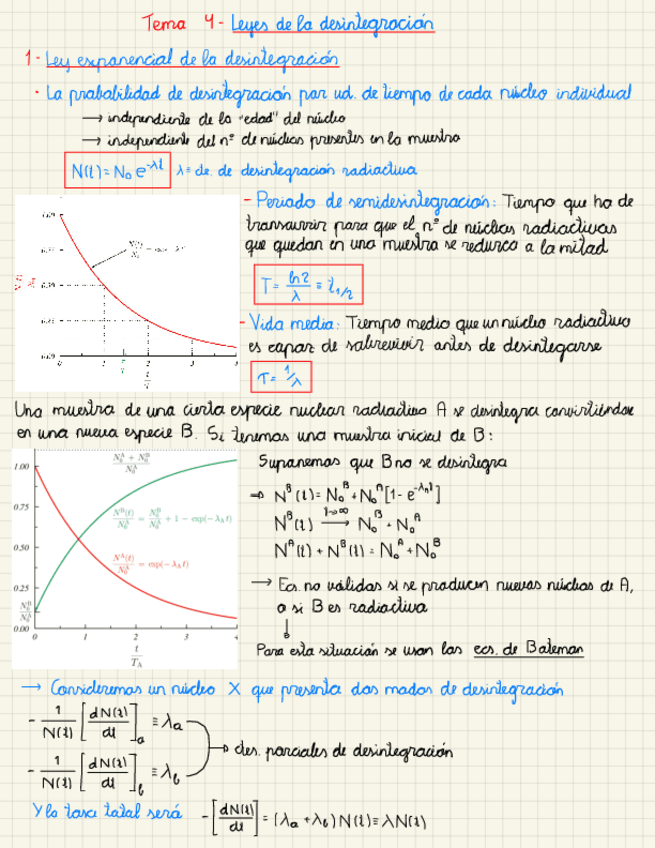 Tema 4- Leyes de la desintegración
1- Ley exponencial de la desintegración
· La probabilidad de desintegración por ud. de tiempo de cada núcleo individual
→ independiente de la "edad" del núcleo
→ independiente del nº de núcleos presentes en la muestra
N(t) = N₀ e^-λt λ = cte. de desintegración radiactiva
- Periodo de semidesintegración: Tiempo que ha de
transcurrir para que el nº de núcleos radiactivos
que quedan en una muestra se reduzca a la mitad
T = ln2/λ ≡ t₁/₂
- Vida media: Tiempo medio que un núcleo radiactivo
es capaz de sobrevivir antes de desintegarse
τ = 1/λ
0 1 2 3 4
Una muestra de una cierta especie nuclear radiactiva A se desintegra convirtiéndose
en una nueva especie B. Si tenemos una muestra inicial de B:
1.00
0.75
0.50
0.25
0.00
N₀ᴮ/N₀ᴬ
(N₀ᴬ + N₀ᴮ)/N₀ᴬ
Nᴮ(t)/N₀ᴬ = N₀ᴮ/N₀ᴬ + 1 − exp(−λ_A t)
Nᴬ(t)/N₀ᴬ = exp(−λ_A t)
0 1 2 3 4
t/T_A
Supanemos que B no se desintegra
⇒ Nᴮ(t) = N₀ᴮ + N₀ᴬ [1 - e^-λ_A t]
Nᴮ(t) t→∞ → N₀ᴮ + N₀ᴬ
Nᴬ(t) + Nᴮ(t) = N₀ᴬ + N₀ᴮ
→ Ecs. no válidas si se producen nuevos núcleos de A,
o si B es radiactiva
↓
Para esta situación se usan las ecs. de Bateman
→ Consideremos un núcleo X que presenta dos modos de desintegración
- 1/N(t) [dN(t)/dt]_a ≡ λ_a
- 1/N(t) [dN(t)/dt]_b ≡ λ_b
→ ctes. parciales de desintegración
Y la tasa total será -[dN(t)/dt] = (λ_a + λ_b) N(t) ≡ λN(t)